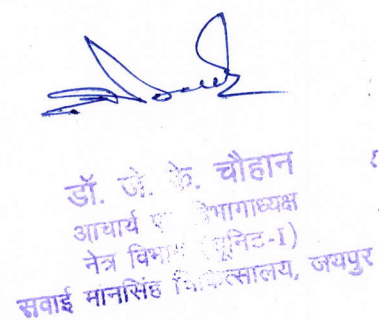 डॉ. जे. के. चौहान
आचार्य एवं विभागाध्यक्ष
नेत्र विभाग (यूनिट-I)
सवाई मानसिंह चिकित्सालय, जयपुर